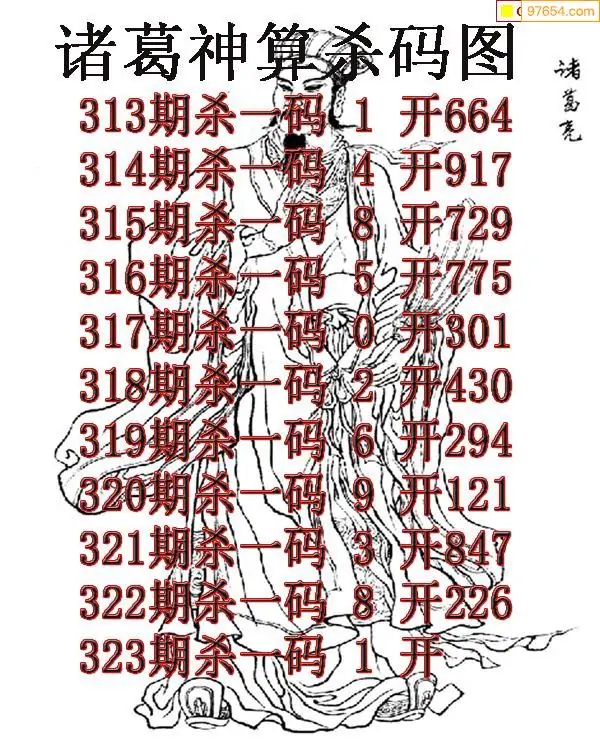 97654.com
诸葛神算杀码图
诸葛亮
313期杀一码 1 开664
314期杀一码 4 开917
315期杀一码 8 开729
316期杀一码 5 开775
317期杀一码 0 开301
318期杀一码 2 开430
319期杀一码 6 开294
320期杀一码 9 开121
321期杀一码 3 开847
322期杀一码 8 开226
323期杀一码 1 开